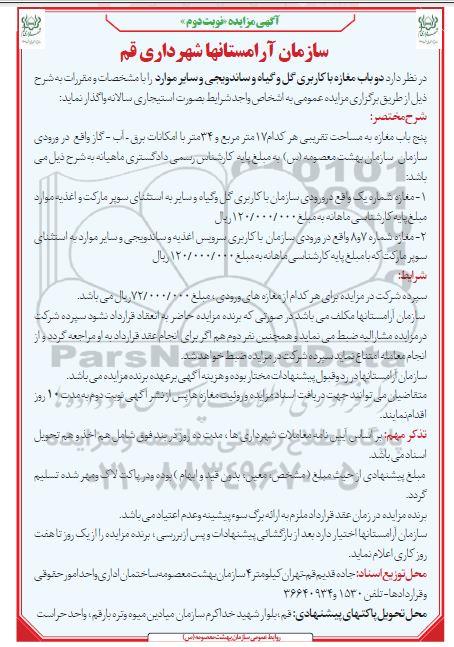 آگهی مزایده «نوبت دوم»
سازمان آرامستانها شهرداری قم
در نظر دارد دو باب مغازه با کاربری گل و گیاه و ساندویچی و سایر موارد را با مشخصات و مقررات به شرح
ذیل از طریق برگزاری مزایده عمومی به اشخاص واجد شرایط بصورت استیجاری سالانه واگذار نماید:
شرح مختصر:
پنج باب مغازه به مساحت تقریبی هر کدام ۱۷ متر مربع و ۳۴ متر با امکانات برق - آب - گاز واقع در ورودی
سازمان سازمان بهشت معصومه (س) به مبلغ پایه کارشناس رسمی دادگستری ماهیانه به شرح ذیل می
باشد:
۱- مغازه شماره یک واقع در ورودی سازمان با کاربری گل وگیاه و سایر به استثنای سوپر مارکت و اغذیه موارد
مبلغ پایه کارشناسی ماهانه به مبلغ ۱۲۰/۰۰۰/۰۰۰ ریال
۲- مغازه شماره ۷و۸ واقع در ورودی سازمان با کاربری سرویس اغذیه و ساندویچی و سایر موارد به استثنای
سوپر مارکت که با مبلغ پایه کارشناسی ماهانه به مبلغ ۱۲۰/۰۰۰/۰۰۰ ریال
شرایط:
سپرده شرکت در مزایده برای هر کدام از مغازه های ورودی ، مبلغ ۷۲/۰۰۰/۰۰۰ ریال می باشد.
سازمان آرامستانها مکلف می باشد در صورتی که برنده مزایده حاضر به انعقاد قرارداد نشود سپرده شرکت
در مزایده مشارالیه ضبط می نماید و همچنین نفر دوم هم اگر برای انجام عقد قرارداد به او مراجعه گردد و از
انجام معامله امتناع نماید سپرده شرکت در مزایده ضبط خواهد شد.
سازمان آرامستانها در رد و قبول پیشنهادات مختار بوده و هزینه آگهی بر عهده برنده مزایده می باشد.
متقاضیان می توانند جهت دریافت اسناد مزایده و روئیت مغازه ها پس از نشر آگهی نوبت دوم به مدت ۱۰ روز
اقدام نمایند.
تذکر مهم: بر اساس آیین نامه معاملات شهرداری ها ، مدت ده روز در بند فوق شامل هم اخذ و هم تحویل
اسناد می باشد.
مبلغ پیشنهادی از حیث مبلغ ( مشخص، معین، بدون قید و ابهام ) بوده و در پاکت لاک ومهر شده تسلیم
گردد.
برنده مزایده در زمان عقد قرارداد ملزم به ارائه برگ سوء پیشینه وعدم اعتیاد می باشد.
سازمان آرامستانها اختیار دارد بعد از بازگشائی پیشنهادات و پس از بررسی ، برنده مزایده را از یک روز تا هفت
روز کاری اعلام نماید.
محل توزیع اسناد: جاده قدیم قم-تهران کیلومتر ۴ سازمان بهشت معصومه ساختمان اداری واحد امور حقوقی
و قراردادها - تلفن ۱۵۳۰ و ۳۶۶۴۰۹۳۴
محل تحویل پاکتهای پیشنهادی: قم ، بلوار شهید خداکرم سازمان میادین میوه وتره بار قم ، واحد حراست
روابط عمومی سازمان بهشت معصومه (س)